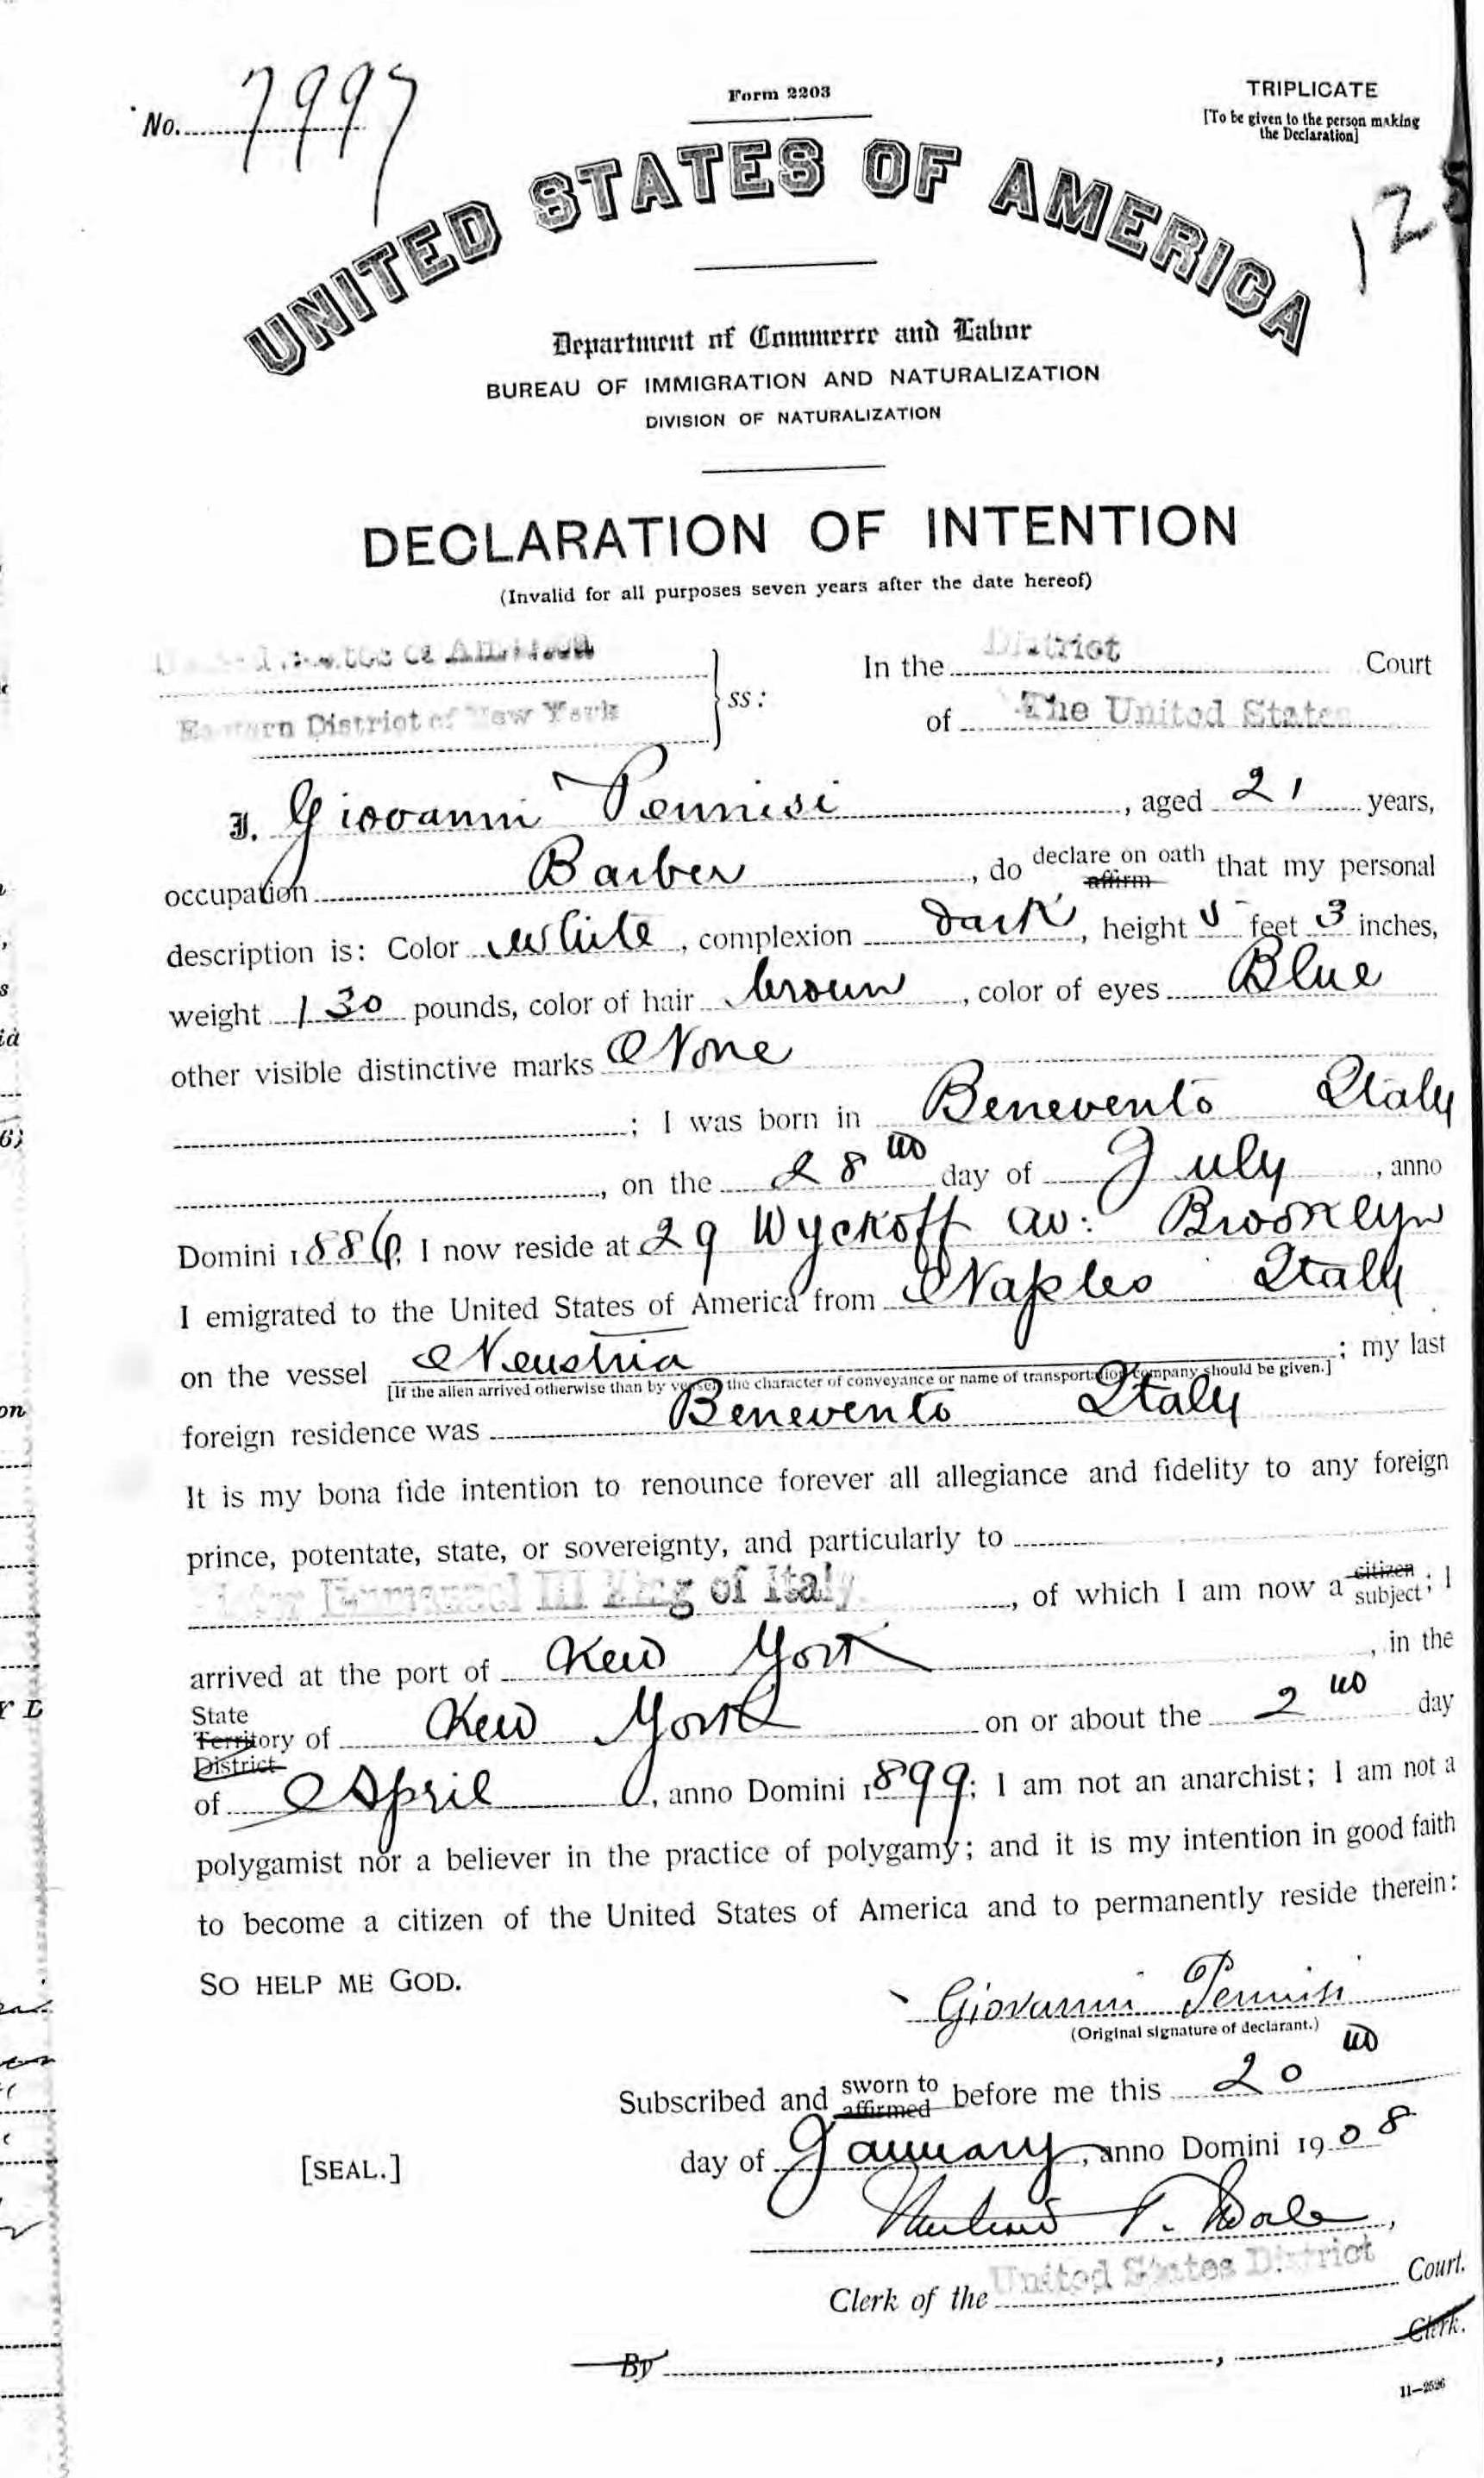 No. 7997
Form 2203
TRIPLICATE
[To be given to the person making
the Declaration]
12
UNITED STATES OF AMERICA
Department of Commerce and Labor
BUREAU OF IMMIGRATION AND NATURALIZATION
DIVISION OF NATURALIZATION
DECLARATION OF INTENTION
(Invalid for all purposes seven years after the date hereof)
United States of America
Eastern District of New York
ss:
In the District Court
of The United States
I, Giovanni Pennisi, aged 21 years,
occupation Barber, do declare on oath affirm that my personal
description is: Color White, complexion Dark, height 5 feet 3 inches,
weight 130 pounds, color of hair brown, color of eyes Blue
other visible distinctive marks None
; I was born in Benevento Italy
, on the 28 day of July, anno
Domini 1886, I now reside at 29 Wyckoff av: Brooklyn
I emigrated to the United States of America from Naples Italy
on the vessel Neustria; my last
[If the alien arrived otherwise than by vessel, the character of conveyance or name of transportation company should be given.]
foreign residence was Benevento Italy
It is my bona fide intention to renounce forever all allegiance and fidelity to any foreign
prince, potentate, state, or sovereignty, and particularly to
Emmanuel III King of Italy, of which I am now a citizen subject; I
arrived at the port of New York, in the
State
Territory of New York on or about the 2 day
District
of April, anno Domini 1899; I am not an anarchist; I am not a
polygamist nor a believer in the practice of polygamy; and it is my intention in good faith
to become a citizen of the United States of America and to permanently reside therein:
SO HELP ME GOD.
Giovanni Pennisi
(Original signature of declarant.)
Subscribed and sworn to affirmed before me this 20
[SEAL.]
day of January, anno Domini 1908
Clerk of the United States District Court.
By , Clerk.
11—2526